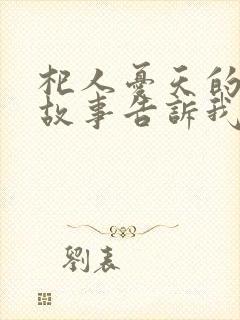 杞人憂天的
故事告訴我
劉表